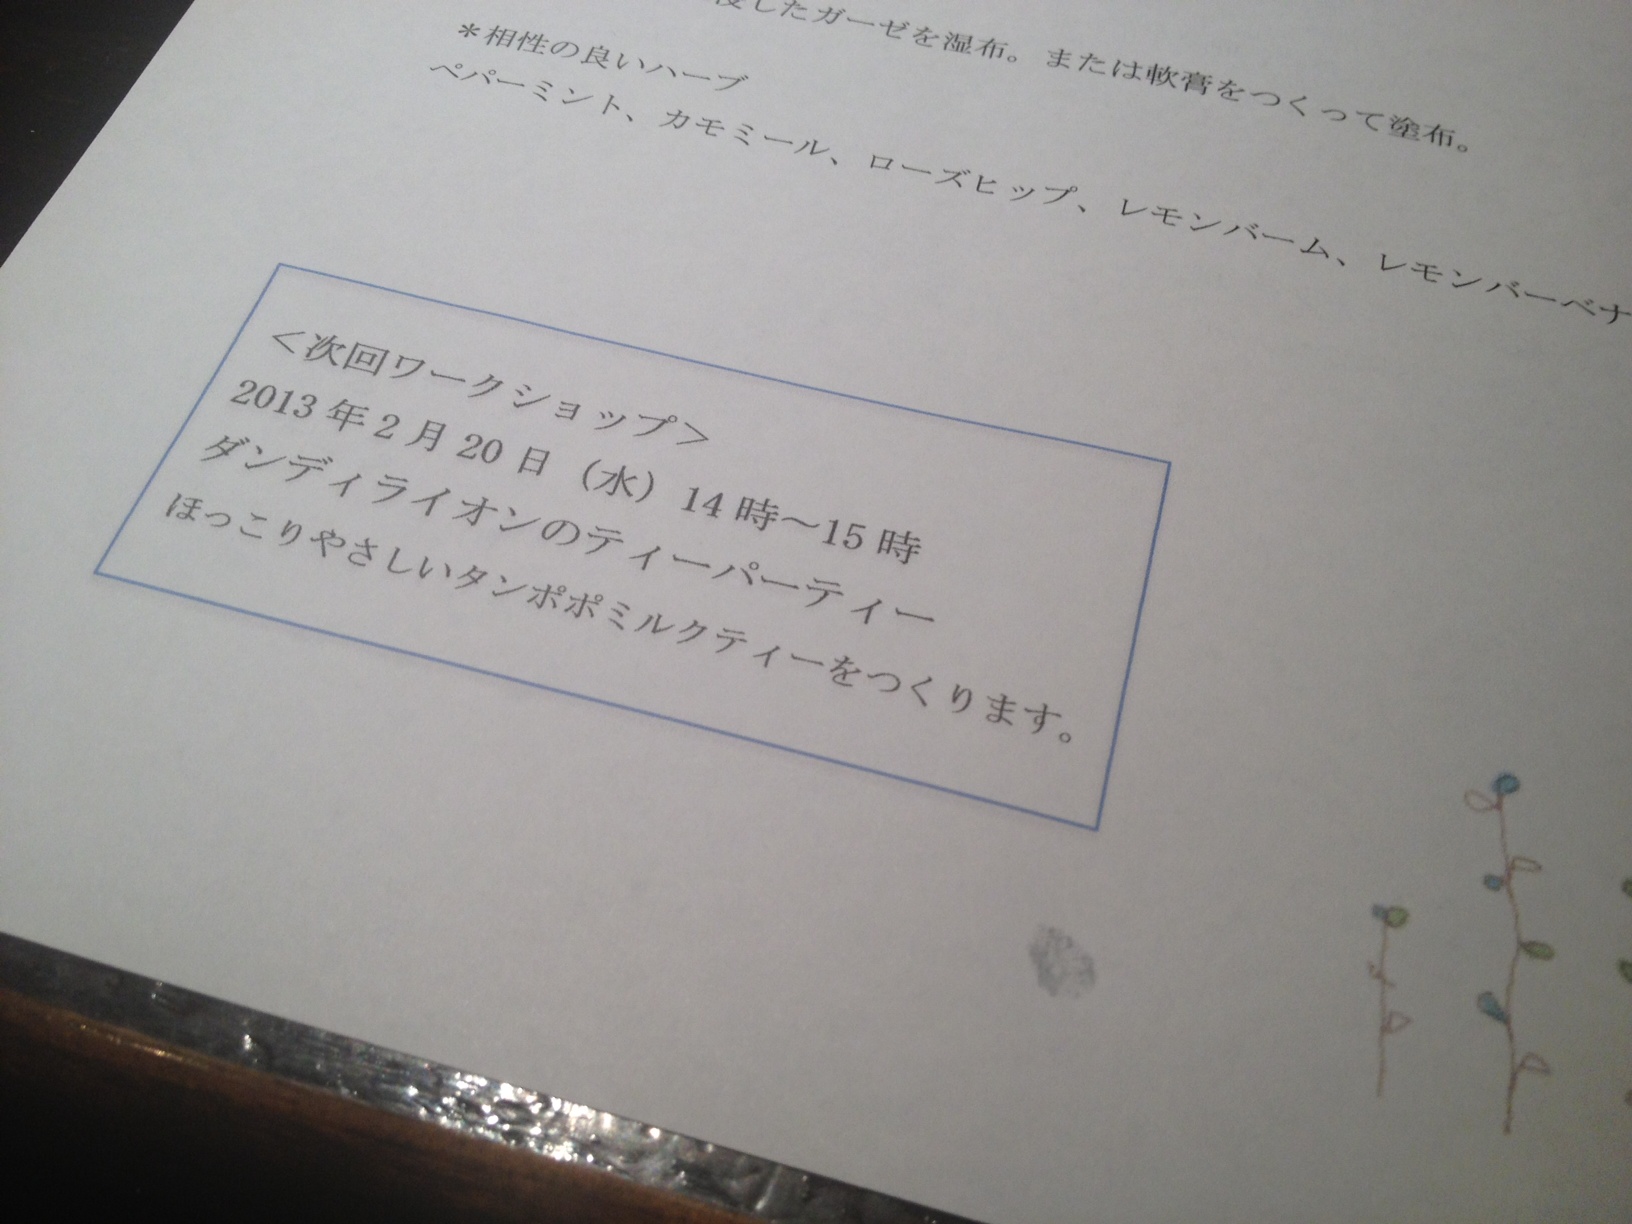 したガーゼを湿布。または軟膏をつくって塗布。
＊相性の良いハーブ
ペパーミント、カモミール、ローズヒップ、レモンバーム、レモンバーベナ
＜次回ワークショップ＞
2013年2月20日（水）14時～15時
ダンディライオンのティーパーティー
ほっこりやさしいタンポポミルクティーをつくります。